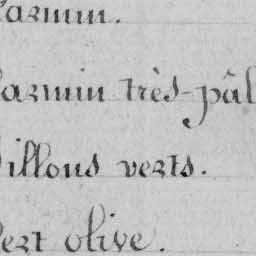 Carmin.
Carmin très-pâl
Sillons verts.
Vert olive.